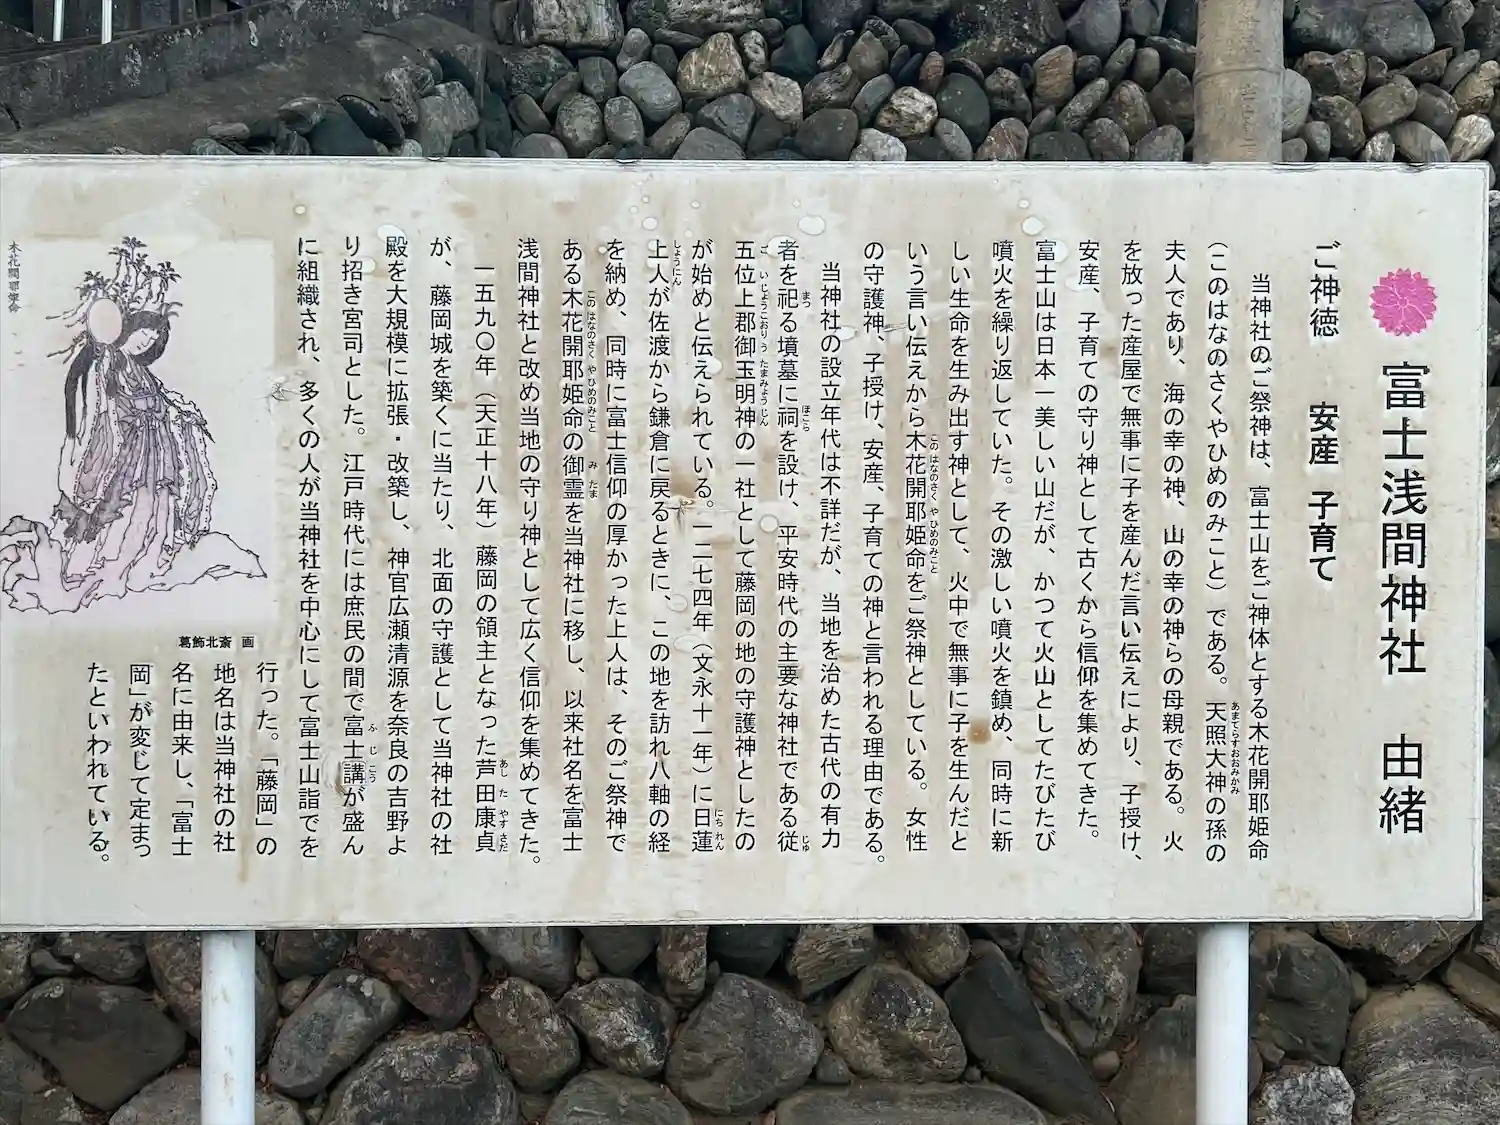 富士浅間神社 由緒
ご神徳 安産 子育て
当神社のご祭神は、富士山をご神体とする木花開耶姫命
(このはなのさくやひめのみこと)である。天照大神の孫の
夫人であり、海の幸の神、山の幸の神らの母親である。火
を放った産屋で無事に子を産んだ言い伝えにより、子授け、
安産、子育ての守り神として古くから信仰を集めてきた。
富士山は日本一美しい山だが、かつて火山としてたびたび
噴火を繰り返していた。その激しい噴火を鎮め、同時に新
しい生命を生み出す神として、火中で無事に子を生んだと
いう言い伝えから木花開耶姫命をご祭神としている。女性
の守護神、子授け、安産、子育ての神と言われる理由である。
当神社の設立年代は不詳だが、当地を治めた古代の有力
者を祀る墳墓に祠を設け、平安時代の主要な神社である従
五位上郡御玉明神の一社として藤岡の地の守護神としたの
が始めと伝えられている。一二七四年(文永十一年)に日蓮
上人が佐渡から鎌倉に戻るときに、この地を訪れ八軸の経
を納め、同時に富士信仰の厚かった上人は、そのご祭神で
ある木花開耶姫命の御霊を当神社に移し、以来社名を富士
浅間神社と改め当地の守り神として広く信仰を集めてきた。
一五九〇年(天正十八年)藤岡の領主となった芦田康貞
が、藤岡城を築くに当たり、北面の守護として当神社の社
殿を大規模に拡張・改築し、神官広瀬清源を奈良の吉野よ
り招き宮司とした。江戸時代には庶民の間で富士講が盛ん
に組織され、多くの人が当神社を中心にして富士山詣でを
行った。「藤岡」の
地名は当神社の社
名に由来し、「富士
岡」が変じて定まっ
たといわれている。
葛飾北斎 画
木花開耶姫命